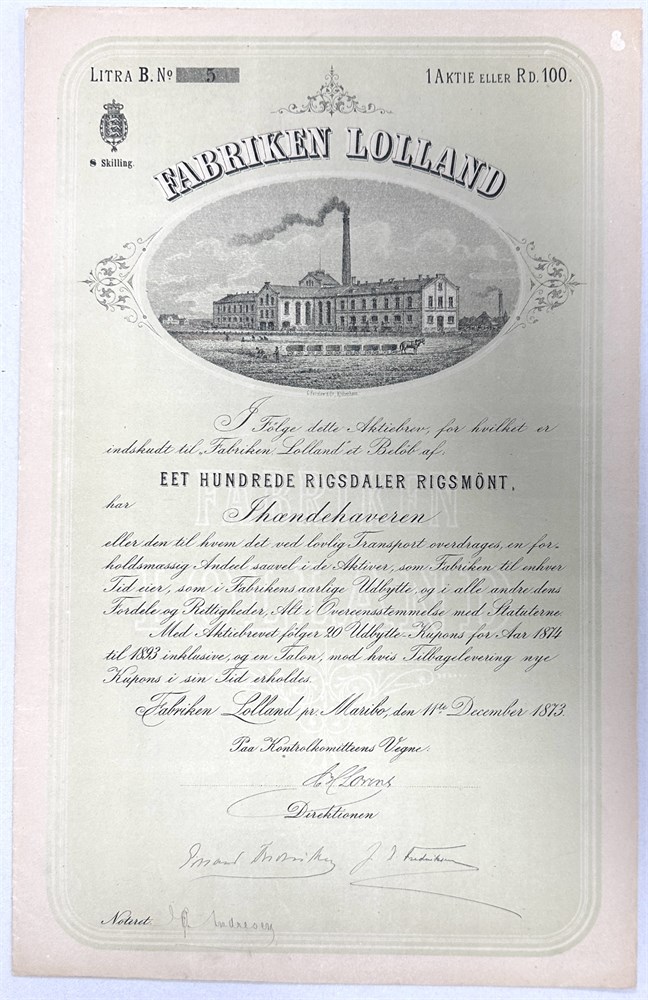 LITRA B. No 5
1 AKTIE ELLER RD. 100.
8 Skilling.
FABRIKEN LOLLAND
I Følge dette Aktiebrev, for hvilket er
indskudt til „Fabriken Lolland" et Beløb af
EET HUNDREDE RIGSDALER RIGSMÖNT,
har Ihændehaveren
eller den til hvem det ved lovlig Transport overdrages, en for-
holdsmæssig Andeel saavel i de Aktiver, som Fabriken til enhver
Tid eier, som i Fabrikens aarlige Udbytte, og i alle andre dens
Fordele og Rettigheder, Alt i Overeensstemmelse med Statuterne.
Med Aktiebrevet følger 20 Udbytte-Kupons for Aar 1874
til 1893 inklusive, og en Talon, mod hvis Tilbagelevering nye
Kupons i sin Tid erholdes.
Fabriken Lolland pr. Maribo, den 11te December 1873.
Paa Kontrolkomitteens Vegne:
Direktionen
Noteret